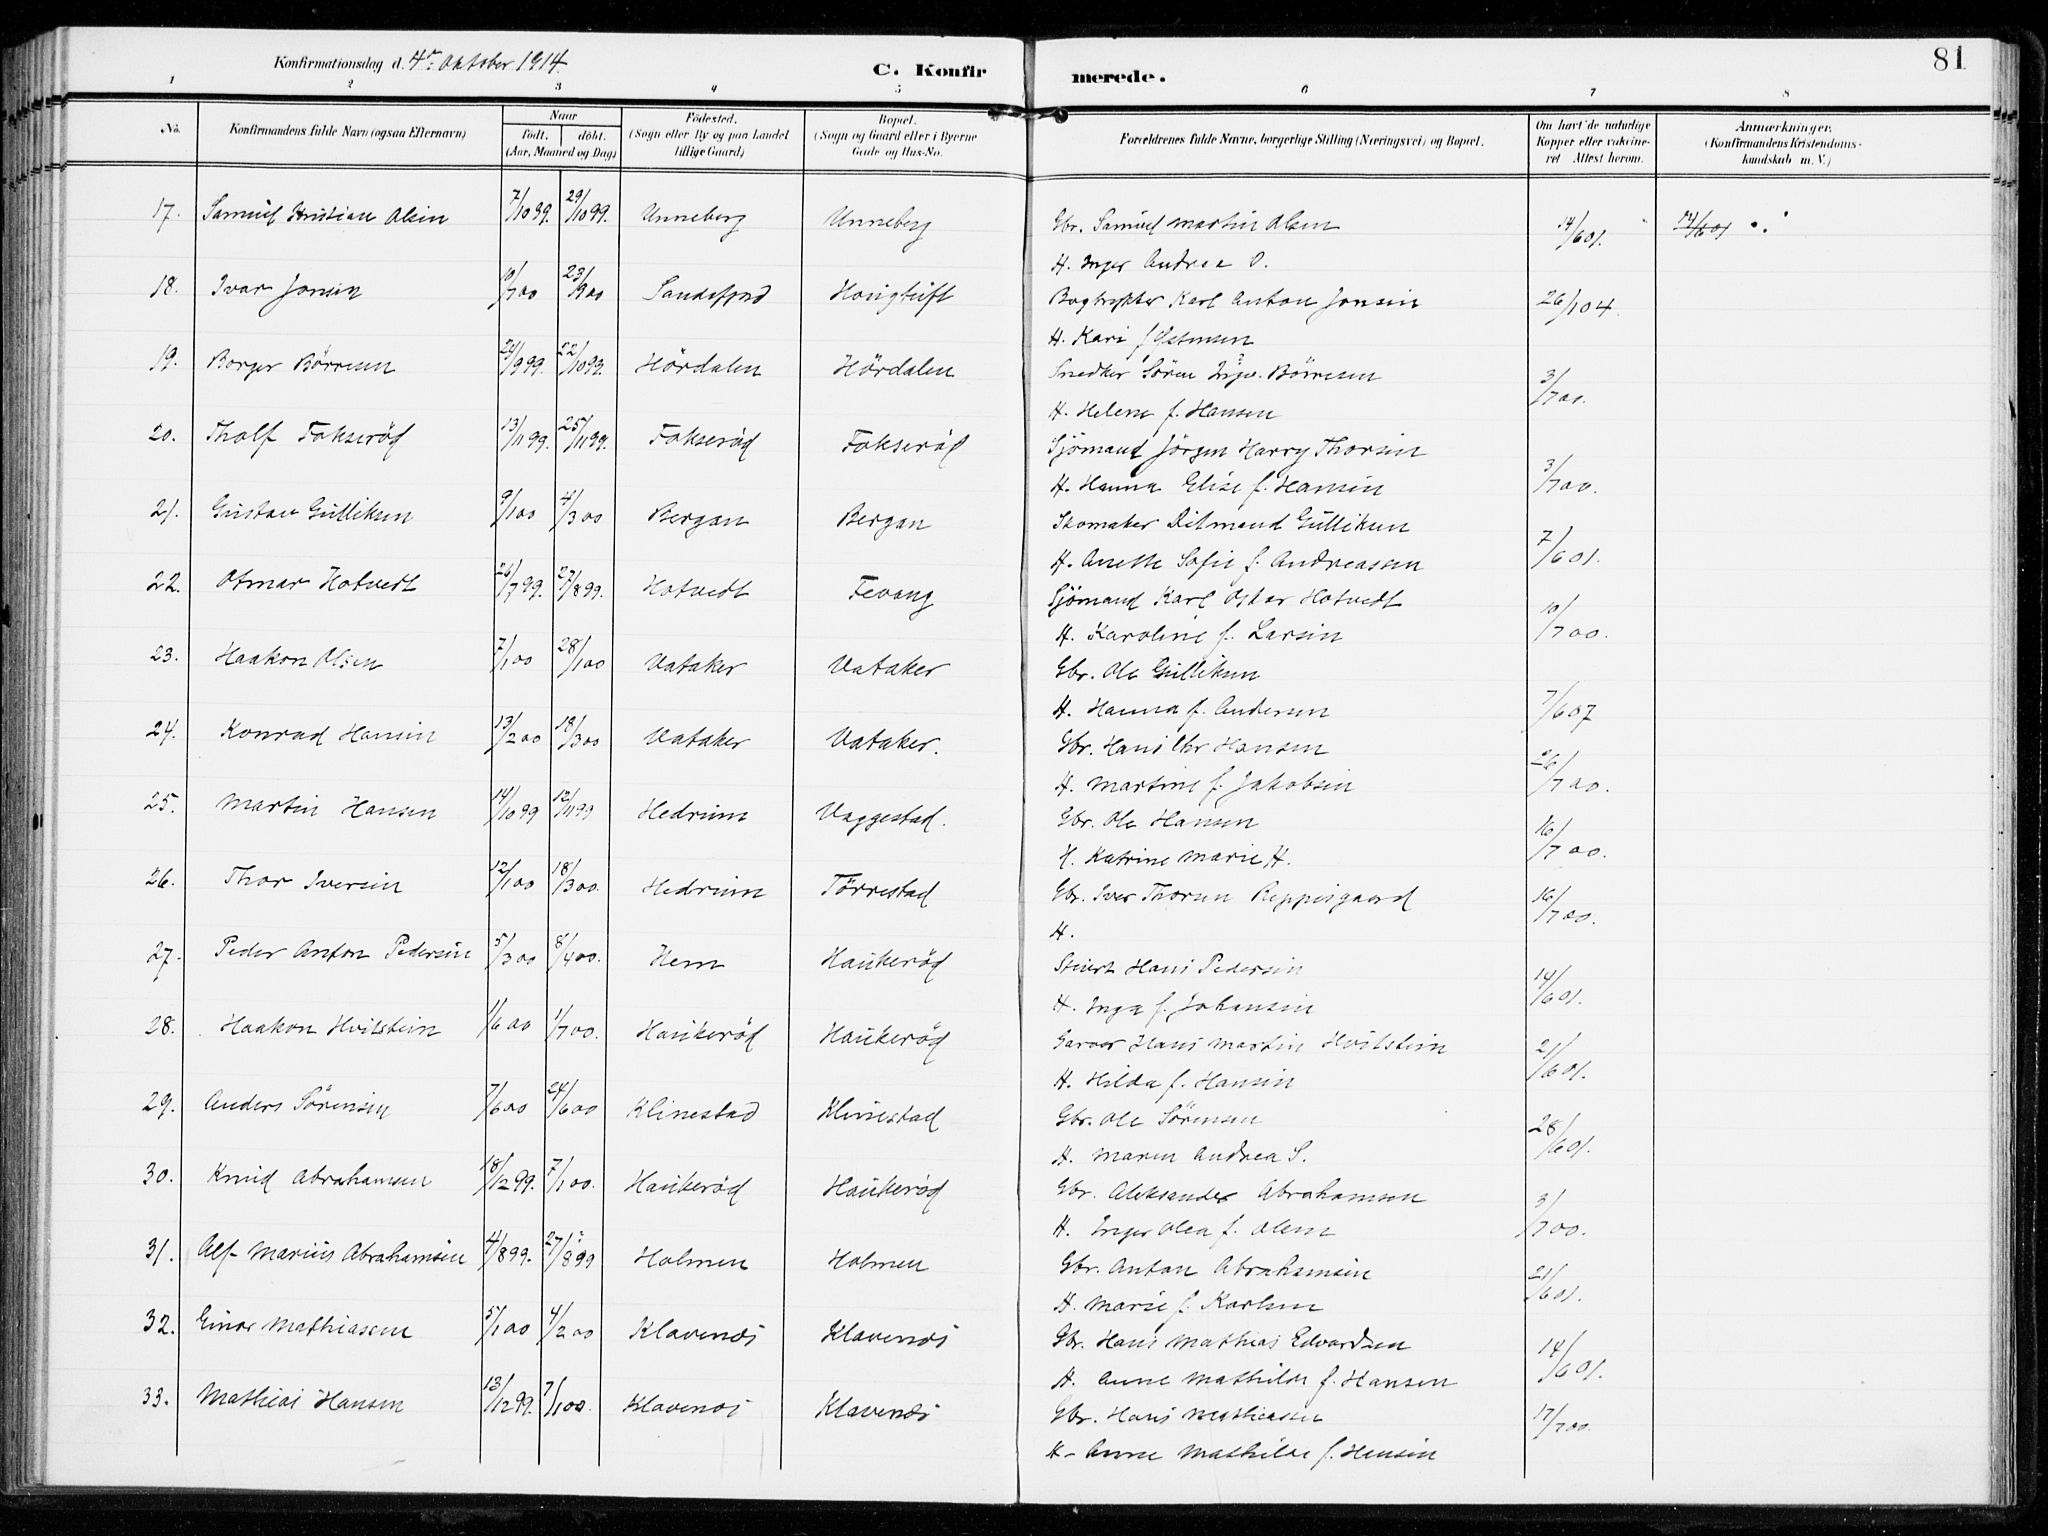 Konfirmationsdag d. 4de Oktober 1914.
C. Konfirmerede.
81
1 2 3 4 5 6 7 8
No. Konfirmandens fulde Navn (ogsaa Efternavn) Naar født. døbt. (Aar, Maaned og Dag) Fødested. (Sogn eller By og paa Landet tillige Gaard) Bopæl. (Sogn og Gaard eller i Byerne Gade og Hus-No. Forældrenes fulde Navne, borgerlige Stilling (Næringsvei) og Bopæl. Om havt de naturlige Kopper eller vakcineret Attest herom. Anmærkninger. (Konfirmandens Kristendomskundskab m. V.)
17. Samuel Kristian Olsen 7/10 99. 29/10 99. Unneberg Unneberg Gbr. Samuel Martin Olsen 14/6 01. 14/6 01
H. Inger Andrea O.
18. Ivar Jonsen 10/7 00 23/9 00 Sandefjord Hougtuft Bogtrykker Karl Anton Jonsen 26/1 04.
H. Kari f. Østensen
19. Borger Børresen 24/9 99. 22/10 99. Hördalen Hördalen Snedker Søren Børresen 3/7 00.
H. Helene f. Hansen
20. Tholf Fokserød 13/11 99. 25/11 99. Fokserød Fokserød Sjømand Jörgen Harry Thorsen 3/7 00.
H. Hanna Elise f. Hansen
21. Gustav Gulliksen 9/1 00 4/3 00 Bergan Bergan Skomaker Ditmand Gulliksen 7/6 01.
H. Anette Sofie f. Andreassen
22. Otmar Hotvedt 26/7 99. 27/8 99. Hotvedt Fevang Sjømand Karl Oskar Hotvedt 10/7 00.
H. Karoline f. Larsen
23. Haakon Olsen 7/1 00 28/1 00 Vataker Vataker Gbr. Ole Gulliksen 7/6 07
H. Hanna f. Andersen
24. Konrad Hansen 13/2 00 18/3 00 Vataker Vataker. Gbr. Hans Chr Hansen 26/7 00.
H. Martine f. Jakobsen
25. Martin Hansen 14/10 99 12/11 99 Hedrum Vaggestad. Gbr. Ole Hansen 16/7 00.
H. Katrine Marie H.
26. Thor Iversen 12/1 00 18/3 00. Hedrum Törrestad Gbr. Iver Thorsen Reppesgaard 16/7 00.
H.
27. Peder Anton Pedersen 5/3 00 8/4 00. Hem Haukerød Hans Pedersen 14/6 01.
H. Inga f. Johansen
28. Haakon Hvitstein 1/6 00 1/7 00. Haukeröd Haukeröd Garver Hans Martin Hvitstein 21/6 01.
H. Hilda f. Hansen
29. Anders Sörensen 7/6 00 24/6 00 Klinestad Klinestad Gbr. Ole Sörensen 28/6 01.
H. Maren Andrea S.
30. Knud Abrahamsen 18/12 99. 7/1 00. Haukeröd Haukeröd Gbr. Aleksander Abrahamsen 3/7 00.
H. Inger Olea f. Olsen
31. Alf Marius Abrahamsen 4/8 99. 27/8 99 Holmen Holmen Gbr. Anton Abrahamsen 21/6 01.
H. Marie f. Karlsen
32. Einar Mathiasen 5/1 00 4/2 00 Klavenæs Klavenæs Gbr. Hans Mathias Edvardsen 14/6 01.
H. Anne Mathilde f. Hansen
33. Mathias Hansen 13/12 99. 7/1 00. Klavenæs Klavenæs Gbr. Hans Mathiassen 17/7 00.
H. Anne Mathilde f. Hansen